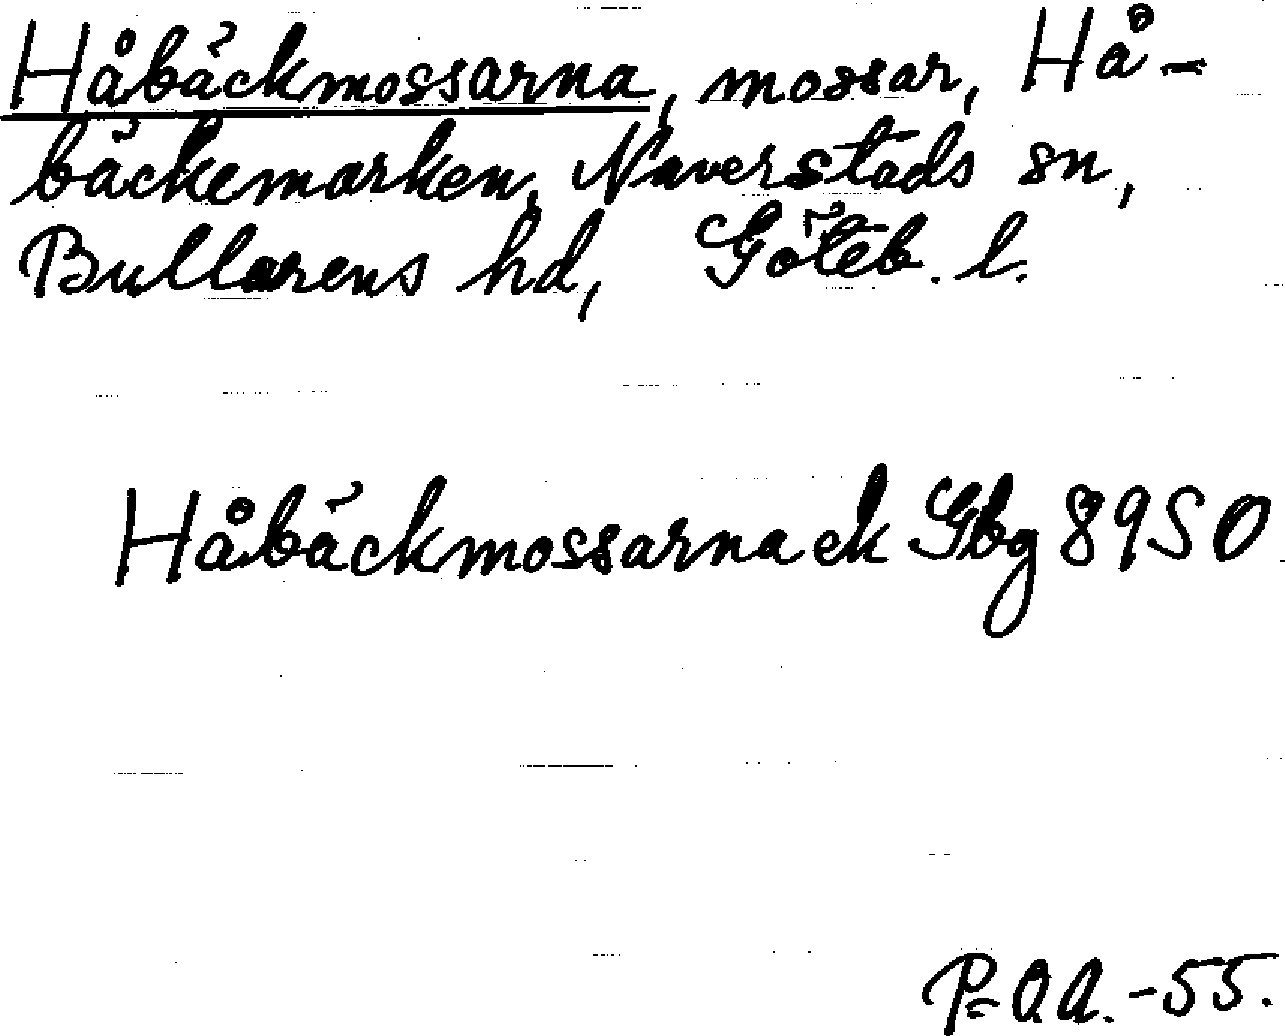 Håbäckmossarna, mossar, Hå-
bäckemarken, Naverstads sn,
Bullarens hd, Göteb. l.
Håbäckmossarna ek Gbg 8950
P=O.A.-55.